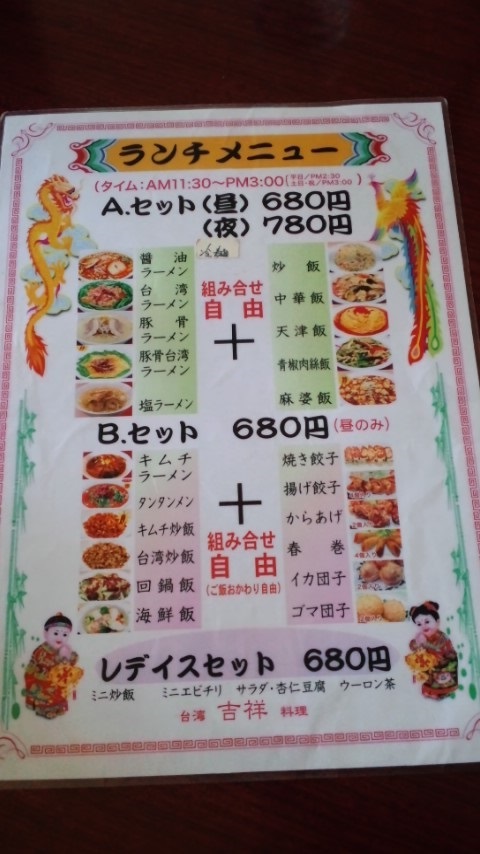 ランチメニュー
(タイム:AM11:30~PM3:00〔平日/PM2:30 土日・祝/PM3:00〕)
A.セット(昼)680円
(夜)780円
醤油ラーメン
台湾ラーメン
豚骨ラーメン
豚骨台湾ラーメン
塩ラーメン
冷麺
組み合せ
自由
+
炒飯
中華飯
天津飯
青椒肉絲飯
麻婆飯
B.セット 680円(昼のみ)
キムチラーメン
タンタンメン
キムチ炒飯
台湾炒飯
回鍋飯
海鮮飯
+
組み合せ
自由
(ご飯おかわり自由)
焼き餃子
揚げ餃子
からあげ
春巻
イカ団子
ゴマ団子
レデイスセット 680円
ミニ炒飯 ミニエビチリ サラダ・杏仁豆腐 ウーロン茶
台湾 吉祥 料理